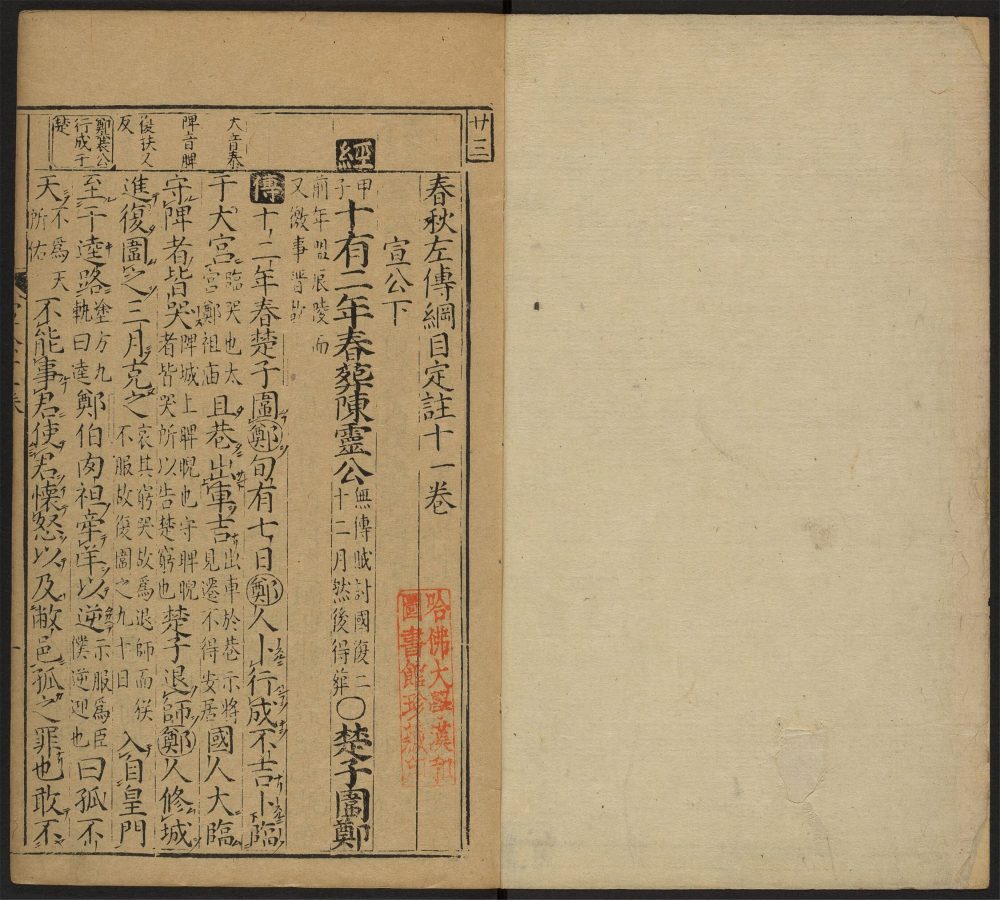 廿三
春秋左傳綱目定註十一卷
宣公下
哈佛大學漢和
圖書館珍藏印
經
甲子十有二年春葬陳靈公無傳賊討國復二十二月然後得葬〇楚子圍鄭
前年盟辰陵而
又徼事晉故
傳十二年春楚子圍鄭旬有七日鄭人卜行成不吉卜臨
大音泰
于大宮臨哭也太宮鄭祖庙且巷出車吉出車於巷示將見遷不得安居國人大臨
陴音脾
守陴者皆哭陴城上脾睨也守脾睨者皆哭所以告楚窮也楚子退師鄭人修城
復扶又
反
進復圍之三月克之哀其窮哭故為退師而猶不服故復圍之九十日入自皇門
鄭襄公
行成于
楚
至于逵路塗方九軌曰逵鄭伯肉袒牽羊以逆示服為臣僕逆迎也曰孤不
天不為天所佑不能事君使君懷怒以及敝邑孤之罪也敢不